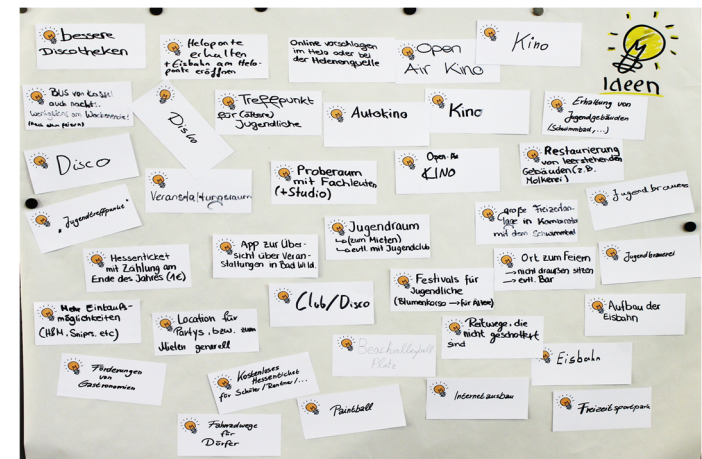 bessere
Discotheken
Heloponte
erhalten
+Eisbahn am Helo-
ponte eröffnen
Online vorschlagen
im Helo oder bei
der Helenenquelle
Open
Air Kino
Kino
Ideen
BUS von Kassel
auch nachts.
wenigstens am Wochenende!
Disko
Treffpunkt
für (ältere)
Jugendliche
Autokino
Kino
Erhaltung von
Jugendgebäuden
(Schwimmbad,...)
Disco
Veranstaltungsraum
Proberaum
mit Fachleuten
(+Studio)
Open-Air
KINO
Restaurierung
von leerstehenden
Gebäuden (z.B.
Molkerei)
Jugendbrauerei
"Jugendtreffpunkte"
Hessenticket
mit Zahlung am
Ende des Jahres (1€)
App zur Über-
sicht über Veran-
staltungen in Bad Wild.
Jugendraum
→(zum Mieten)
→ evtl. mit Jugendclub
große Freizeitan-
lage in Kombination
mit dem Schwimmbad
Ort zum Feiern
→ nicht draußen sitzen
→ evtl. Bar
Jugendbrauerei
Mehr Einkaufs-
möglichkeiten
(H&M, Snipes, etc)
Location für
Partys, bzw. zum
Mieten generell
Club/Disco
Festivals für
Jugendliche
(Blumenkorso → für Ältere)
Reitwege, die
nicht geschottert
sind
Aufbau der
Eisbahn
Förderungen
von
Gastronomien
Kostenloses
Hessenticket
für Schüler/Rentner/...
Beachvolleyball
Platz
Eisbahn
Fahrradwege
für
Dörfer
Paintball
Internetausbau
Freizeitsportpark